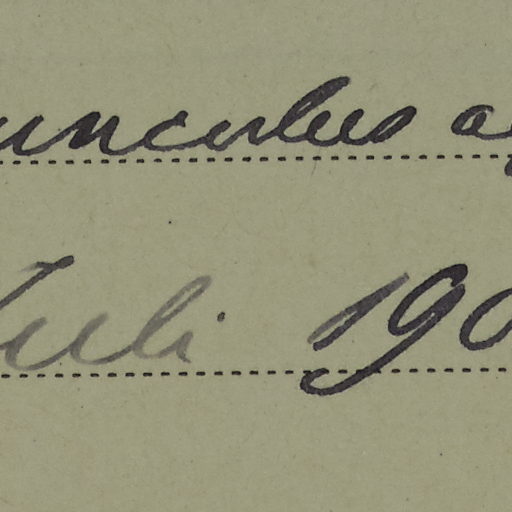 unculus a
Juli 190